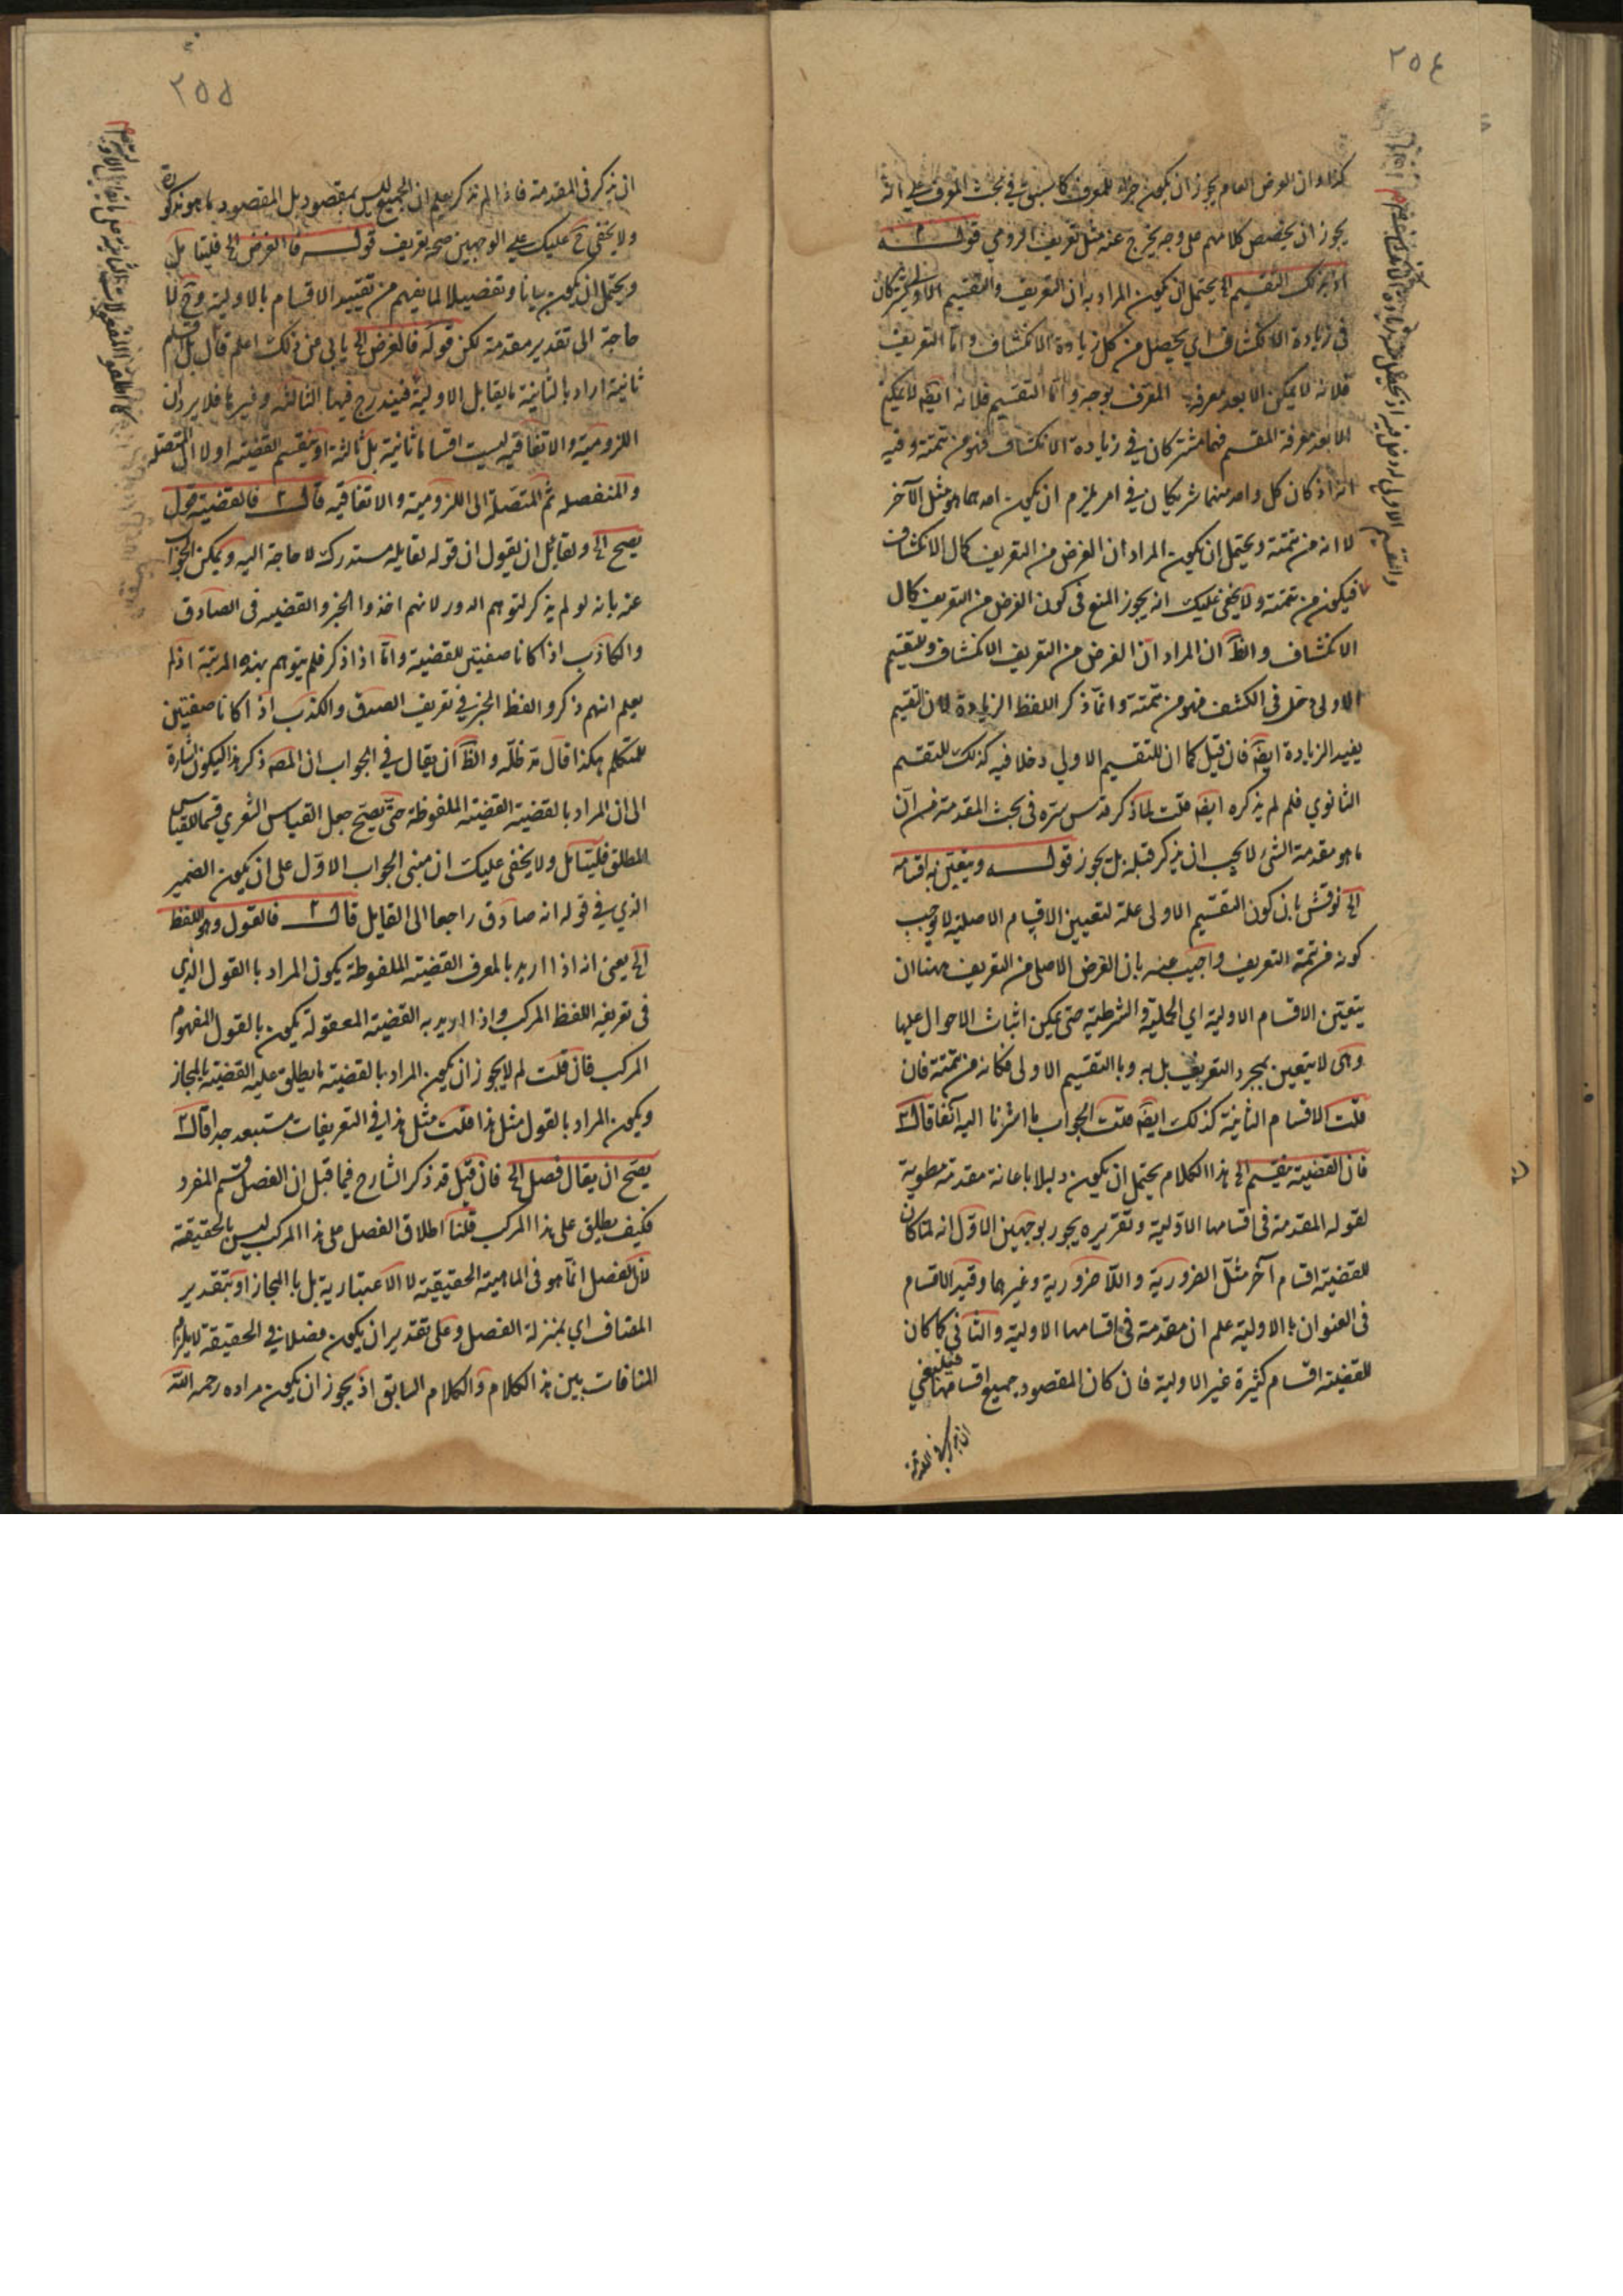 ٢٥٤
كذا وان العرض العام يجوز ان يكون جزء للمعرف كما سبق في بحث المعرف على انه
يجوز ان يخصص كلامهم على وجه يخرج عنه مثل تعريف الرومي قوله
التقسيم الخ يحتمل ان يكون المراد به ان التعريف والتقسيم الاولي يشتركان
في زيادة الانكشاف اي يحصل من كل زيادة الانكشاف واما التعريف
فلانه لا يمكن الا بعد معرفة المعرف بوجه واما التقسيم فلانه ايضا لا يمكن
الا بعد معرفة المقسم فهما مشتركان في زيادة الانكشاف فهو من تتمته وفيه
انه اذ كان كل واحد منهما شريكان في امر يلزم ان يكون احدهما هو مثل الآخر
لا انه من تتمته ويحتمل ان يكون المراد ان الغرض من التعريف كمال الانكشاف
فيكون من تتمته ولا يخفى عليك انه يجوز المنع في كون الغرض من التعريف كمال
الانكشاف والظ ان المراد ان الغرض من التعريف الانكشاف وللتقسيم
الاولى دخل في الكشف فهو من تتمته وانما ذكر اللفظ الزيادة لان التقسيم
يفيد الزيادة ايضا فان قيل كما ان للتقسيم الاولي دخلا فيه كذلك للتقسيم
الثانوي فلم لم يذكره ايضا قلت لما ذكر قدس سره في بحث المقدمة من ان
ما هو مقدمة الشئ لا يجب ان يذكر قبله بل يجوز قوله ويتعين به اقسامه
الخ نوقش بان كون التقسيم الاولى علة لتعيين الاقسام الاصلية لا يوجب
كونه من تتمة التعريف واجيب عنه بان الغرض الاصلي من التعريف ههنا ان
يتعين الاقسام الاولية اي الحملية والشرطية حتى يمكن اثبات الاحوال عليها
وهى لا يتعين بمجرد التعريف بل به وبالتقسيم الاولى فكانه من تتمته فان
قلت الاقسام الثانية كذلك ايضا قلت الجواب ما اشرنا اليه آنفا قال
فان القضية ينقسم الخ هذا الكلام يحتمل ان يكون دليلا باعانة مقدمة مطوية
لقوله المقدمة في اقسامها الاولية وتقريره يجوز بوجهين الاول انه لما كان
للقضية اقسام آخر مثل الضرورية واللا ضرورية وغيرهما وقيد الاقسام
في العنوان بالاولية علم ان مقدمة في اقسامها الاولية والثاني كما كان
للقضية اقسام كثيرة غير الاولية فان كان المقصود جميع اقسامها فينبغي
ان يذكر في المقدمة
٢٥٥
ان يذكر في المقدمة فاذا لم يذكر يعلم ان الجميع ليس بمقصود بل المقصود ما هو مذكور
ولا يخفى ح عليك على الوجهين صحة تعريف قوله فالغرض الخ فليتامل
ويحتمل ان يكون بيانا وتفصيلا لما يفهم من تقييد الاقسام بالاولية وح لا
حاجة الى تقدير مقدمة لكن قوله فالغرض الخ يابى عن ذلك اعلم قال
ثانية اراد بالثانية ما يقابل الاولية فيندرج فيها الثالثة وغيرها فلا يرد ان
اللزومية والاتفاقية ليست اقساما ثانية بل ثالثة اذ ينقسم القضية اولا الى المتصلة
والمنفصلة ثم المتصلة الى اللزومية والاتفاقية قال فالقضية قول
يصح الخ ولقائل ان يقول ان قوله لقايله مستدرك لا حاجة اليه ويمكن الجواب
عنه بانه لو لم يذكر لتوهم الدور لانهم اخذوا الخبر والقضية في الصادق
والكاذب اذا كانا صفتين للقضية واما اذا ذكر فلم يتوهم بهذه المرتبة اذ لم
يعلم انهم ذكروا لفظ الخبر في تعريف الصدق والكذب اذا كانا صفتين
للمتكلم هكذا قال مد ظله والظ ان يقال في الجواب ان المص ذكر هذا ليكون اشارة
الى ان المراد بالقضية القضية الملفوظة حتى يصح جعل القياس الشعري قسما للقياس
المطلق فليتامل ولا يخفى عليك ان مبنى الجواب الاول على ان يكون الضمير
الذي في قوله انه صادق راجعا الى القايل قال فالقول وهو اللفظ
الخ يعنى انه اذا اريد بالمعرف القضية الملفوظة يكون المراد بالقول الذي
في تعريفه اللفظ المركب واذا اريد به القضية المعقولة يكون بالقول المفهوم
المركب فان قلت لم لا يجوز ان يكون المراد بالقضية ما يطلق عليه القضية بالمجاز
ويكون المراد بالقول مثل هذا قلت مثل هذا في التعريفات مستبعد جدا قال
يصح ان يقال فصل الخ فان قيل قد ذكر الشارح فيما قبل ان الفصل قسم المفرد
فكيف يطلق على هذا المركب قلنا اطلاق الفصل على هذا المركب ليس بالحقيقة
لان الفصل انما هو في الماهية الحقيقية لا الاعتبارية بل بالمجاز او بتقدير
المضاف اي بمنزلة الفصل وعلى تقدير ان يكون فصلا في الحقيقة لا يلزم
المنافات بين هذا الكلام والكلام السابق اذ يجوز ان يكون مراده رحمه الله